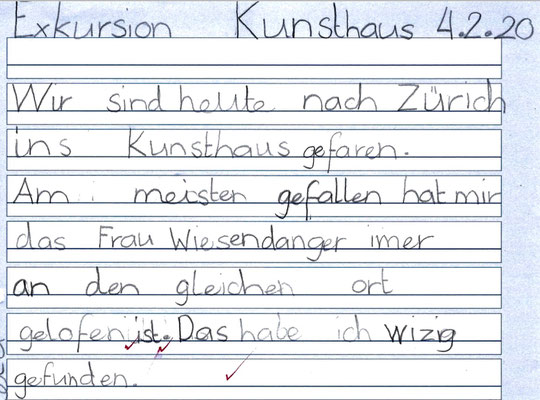 Exkursion Kunsthaus 4.2.20
Wir sind heute nach Zürich
ins Kunsthaus gefaren.
Am meisten gefallen hat mir
das Frau Wiesendanger imer
an den gleichen ort
gelofen ist. Das habe ich wizig
gefunden.